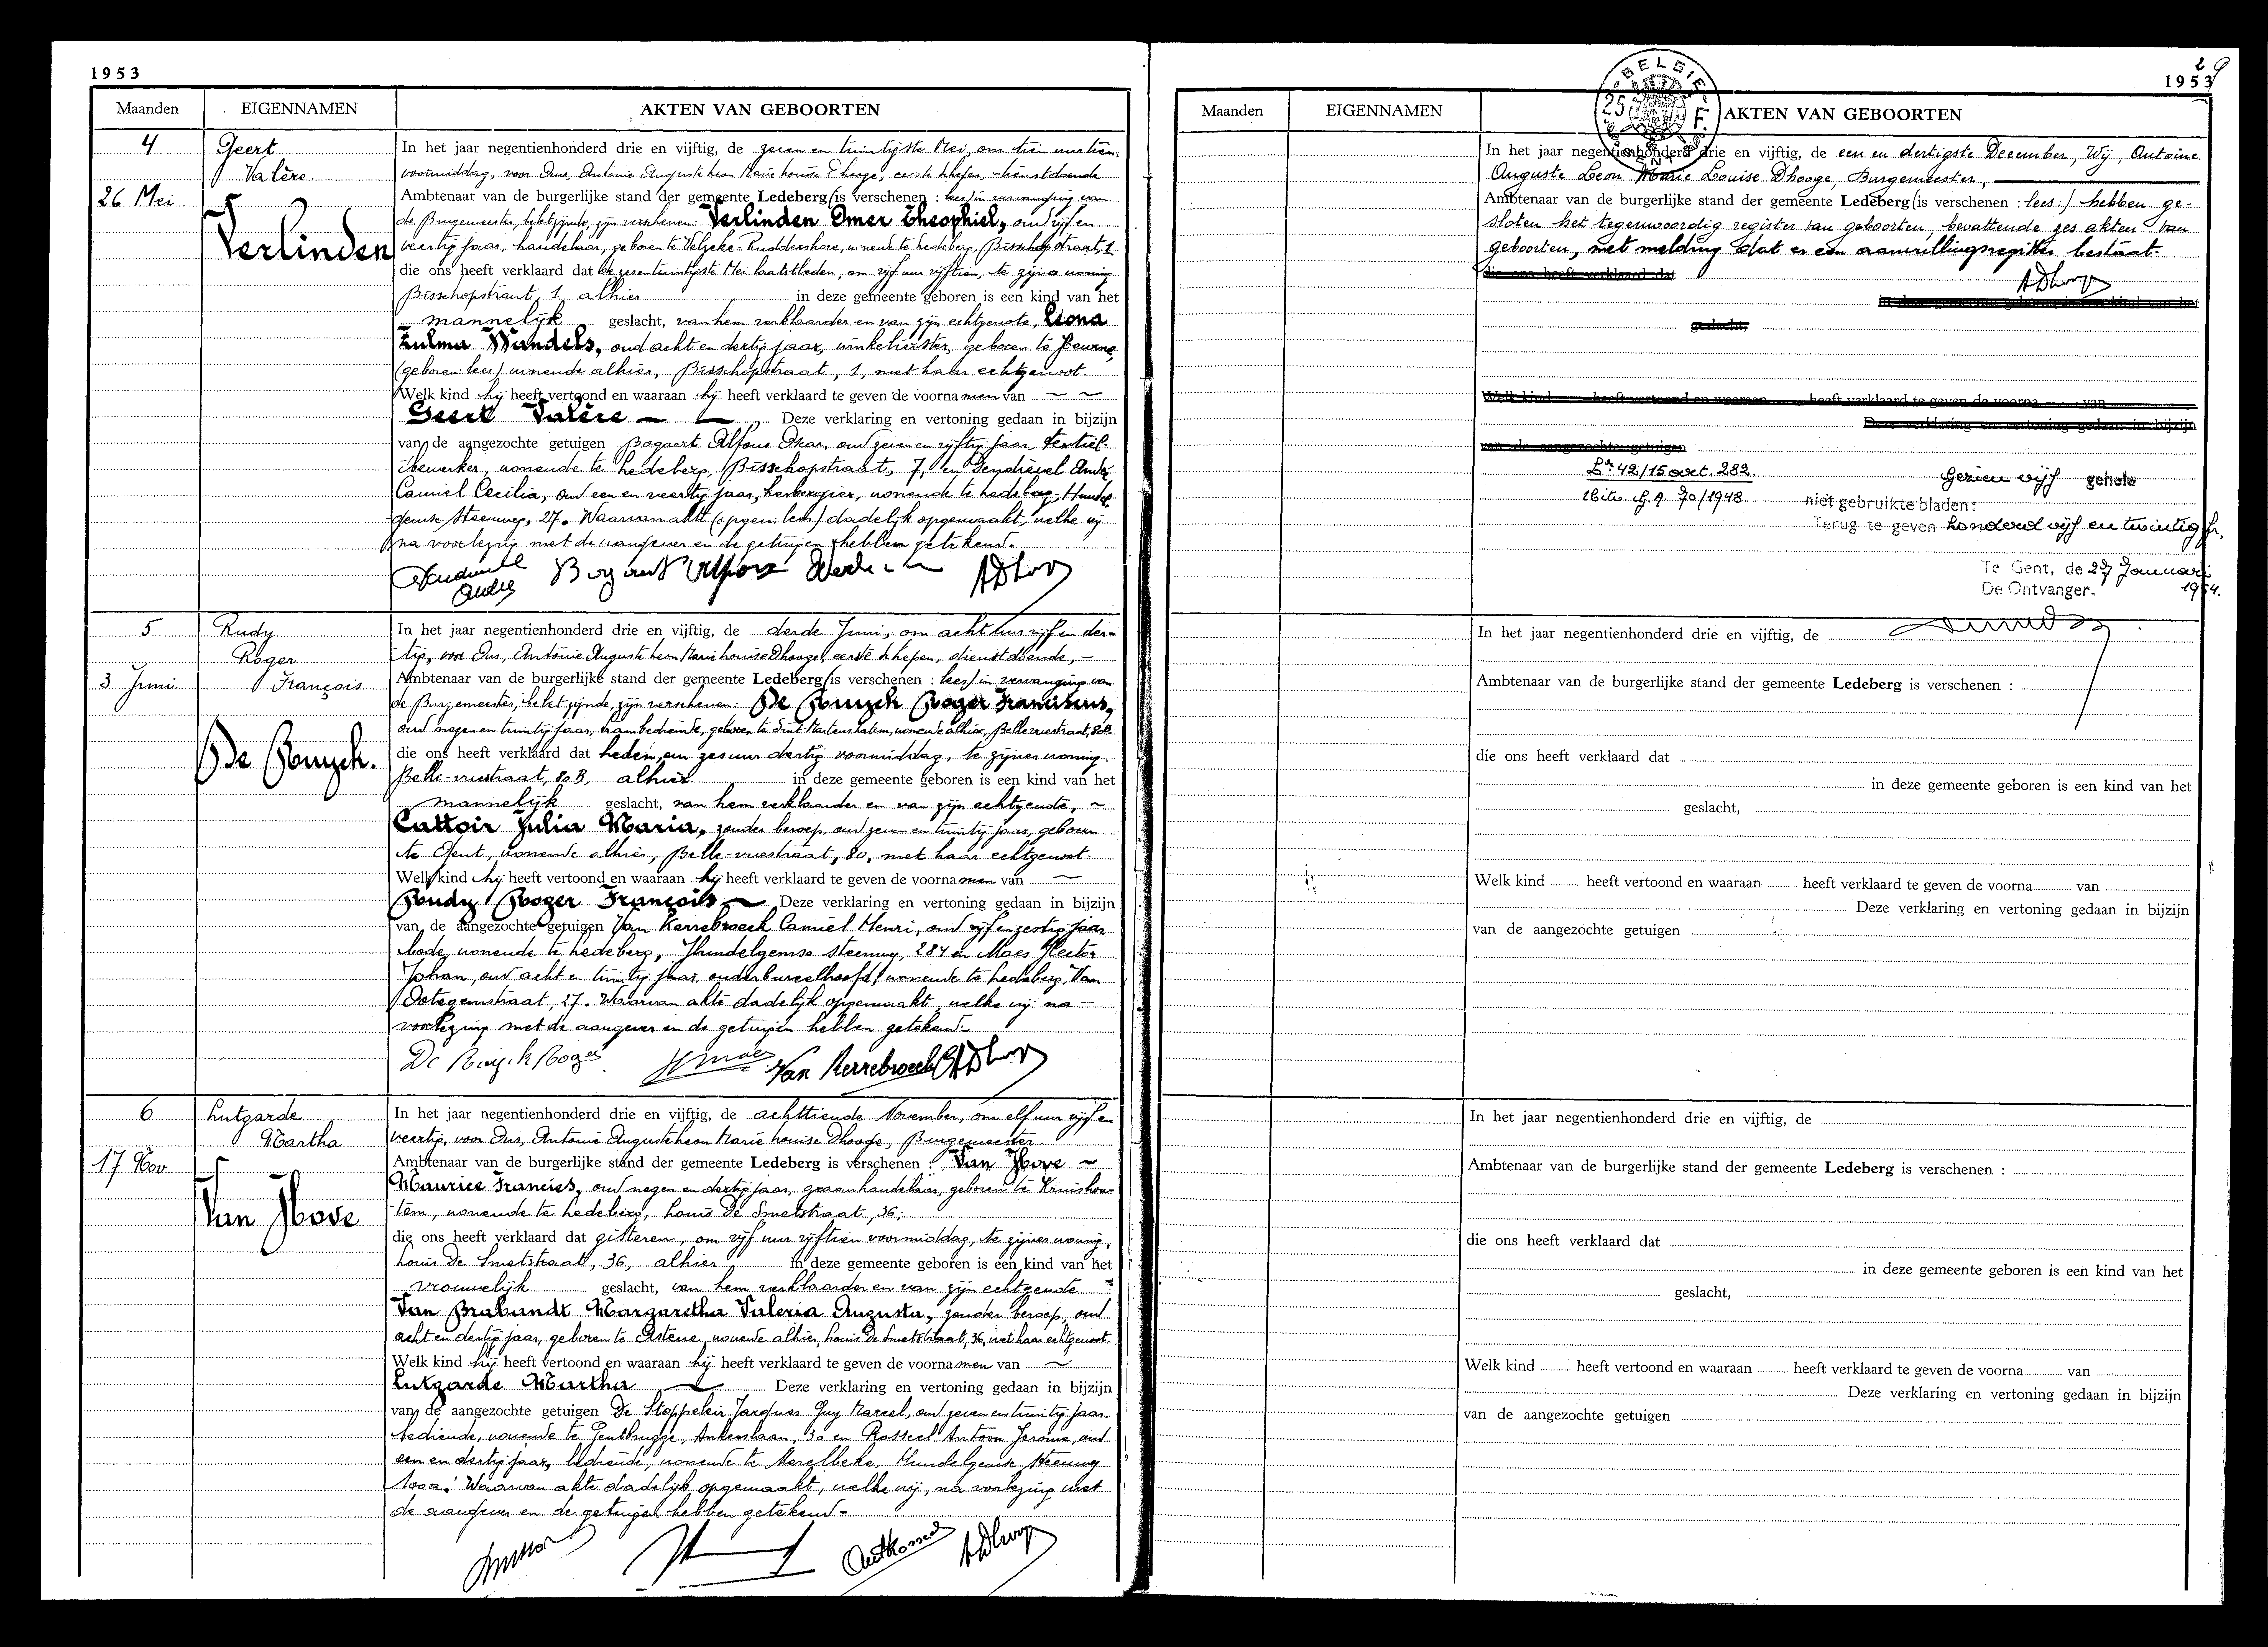 1953
Maanden EIGENNAMEN AKTEN VAN GEBOORTEN
4
Geert
Valère
26 Mei
Verlinden
In het jaar negentienhonderd drie en vijftig, de zeven en twintigste Mei, om tien uur tien,
voormiddag, voor Ons, Antoine Auguste Leon Marie Louise Dhooge, eerste schepen, dienstdoende
Ambtenaar van de burgerlijke stand der gemeente Ledeberg (is verschenen : lees) in vervanging van
de Burgemeester, belet zijnde, zijn verschenen: Verlinden Omer Theophiel, oud vijf en
veertig jaar, handelaar, geboren te Velzeke-Ruddershove, wonende te Ledeberg, Bisschopstraat, 1
die ons heeft verklaard dat de zesentwintigste Mei laatstleden, om vijf uur vijftien, te zijner woning
Bisschopstraat, 1, alhier in deze gemeente geboren is een kind van het
mannelijk geslacht, van hem verklaarder en van zijn echtgenote, Leona
Zulma Windels, oud acht en dertig jaar, winkelierster, geboren te Deurne
(geboren: lees) wonende alhier, Bisschopstraat, 1, met haar echtgenoot.
Welk kind hij heeft vertoond en waaraan hij heeft verklaard te geven de voornamen van
Geert Valère Deze verklaring en vertoning gedaan in bijzijn
van de aangezochte getuigen Bogaert Alfons Oscar, oud zeven en vijftig jaar, textiel-
bewerker, wonende te Ledeberg, Bisschopstraat, 7, en André
Camiel Cecilia, oud een en veertig jaar, herbergier, wonende te Ledeberg, Hundel-
gemse Steenweg, 27. Waarvan akte (opgem: lees) dadelijk opgemaakt, welke wij
na voorlezing met de aangever en de getuigen hebben getekend.
5
Rudy
Roger
3 Juni
François
De Ruyck.
In het jaar negentienhonderd drie en vijftig, de derde Juni, om acht uur vijf en der-
tig, voor Ons, Antoine Auguste Leon Marie Louise Dhooge, eerste schepen, dienstdoende,
Ambtenaar van de burgerlijke stand der gemeente Ledeberg (is verschenen : lees) in vervanging van
de Burgemeester, belet zijnde, zijn verschenen: De Ruyck Roger Franciscus,
oud negen en twintig jaar, trambediende, geboren te Sint-Martens-Latem, wonende alhier, Bellevuestraat, 80B
die ons heeft verklaard dat heden, om zes uur dertig voormiddag, te zijner woning
Belle-vuestraat, 80B, alhier in deze gemeente geboren is een kind van het
mannelijk geslacht, van hem verklaarder en van zijn echtgenote,
Cattoir Julia Maria, zonder beroep, oud zeven en twintig jaar, geboren
te Gent, wonende alhier, Belle-vuestraat, 80, met haar echtgenoot.
Welk kind hij heeft vertoond en waaraan hij heeft verklaard te geven de voornamen van
Rudy Roger François Deze verklaring en vertoning gedaan in bijzijn
van de aangezochte getuigen Van Kerrebroeck Camiel Henri, oud vijf en zestig jaar
bode, wonende te Ledeberg, Hundelgemse steenweg, 284 en Maes Hector
Johan, oud acht en twintig jaar, onderbureelhoofd, wonende te Ledeberg, Van
Ootegemstraat, 27. Waarvan akte dadelijk opgemaakt, welke wij na
voorlezing met de aangever en de getuigen hebben getekend.
De Ruyck Roger HMaes Van Kerrebroeck C ADhooge
6
Lutgarde
Martha
17 Nov.
Van Hove
In het jaar negentienhonderd drie en vijftig, de achttiende November, om elf uur vijf en
veertig, voor Ons, Antoine Auguste Leon Marie Louise Dhooge, Burgemeester
Ambtenaar van de burgerlijke stand der gemeente Ledeberg is verschenen : Van Hove
Maurice Francies, oud negen en dertig jaar, graanhandelaar, geboren te Kruishou-
tem, wonende te Ledeberg, Louis De Smetstraat, 36;
die ons heeft verklaard dat gisteren, om vijf uur vijftien voormiddag, te zijner woning,
Louis De Smetstraat, 36, alhier in deze gemeente geboren is een kind van het
vrouwelijk geslacht, van hem verklaarder en van zijn echtgenote
Van Brabandt Margaretha Valeria Augusta, zonder beroep, oud
acht en dertig jaar, geboren te Astene, wonende alhier, Louis De Smetstraat, 36, met haar echtgenoot.
Welk kind hij heeft vertoond en waaraan hij heeft verklaard te geven de voornamen van
Lutgarde Martha Deze verklaring en vertoning gedaan in bijzijn
van de aangezochte getuigen De Stoppeleir Jacques Guy Marcel, oud zeven en twintig jaar
bediende, wonende te Gentbrugge, Ankerslaan, 30 en Rosseel Antoon Jerome, oud
een en dertig jaar, bediende, wonende te Merelbeke, Hundelgemse steenweg
100a. Waarvan akte dadelijk opgemaakt, welke wij, na voorlezing met
de aangever en de getuigen hebben getekend.
29
1953
BELGIE
25 F.
Maanden EIGENNAMEN AKTEN VAN GEBOORTEN
In het jaar negentienhonderd drie en vijftig, de een en dertigste December, Wij, Antoine
Auguste Leon Marie Louise Dhooge, Burgemeester,
Ambtenaar van de burgerlijke stand der gemeente Ledeberg (is verschenen : lees:) hebben ge-
sloten het tegenwoordig register van geboorten, bevattende zes akten van
geboorten, met melding dat er een aanvullingsregister bestaat.
die ons heeft verklaard dat
ADhooge
in deze gemeente geboren is een kind van het
geslacht,
Welk kind heeft vertoond en waaraan heeft verklaard te geven de voorna van
Deze verklaring en vertoning gedaan in bijzijn
van de aangezochte getuigen
42/15 art. 282.
70/1948
Gezien vijf gehele
niet gebruikte bladen:
Terug te geven honderd vijf en twintig fr,
Te Gent, de 27 Januari
De Ontvanger. 1954.
In het jaar negentienhonderd drie en vijftig, de
Ambtenaar van de burgerlijke stand der gemeente Ledeberg is verschenen :
die ons heeft verklaard dat
in deze gemeente geboren is een kind van het
geslacht,
Welk kind heeft vertoond en waaraan heeft verklaard te geven de voorna van
Deze verklaring en vertoning gedaan in bijzijn
van de aangezochte getuigen
In het jaar negentienhonderd drie en vijftig, de
Ambtenaar van de burgerlijke stand der gemeente Ledeberg is verschenen :
die ons heeft verklaard dat
in deze gemeente geboren is een kind van het
geslacht,
Welk kind heeft vertoond en waaraan heeft verklaard te geven de voorna van
Deze verklaring en vertoning gedaan in bijzijn
van de aangezochte getuigen